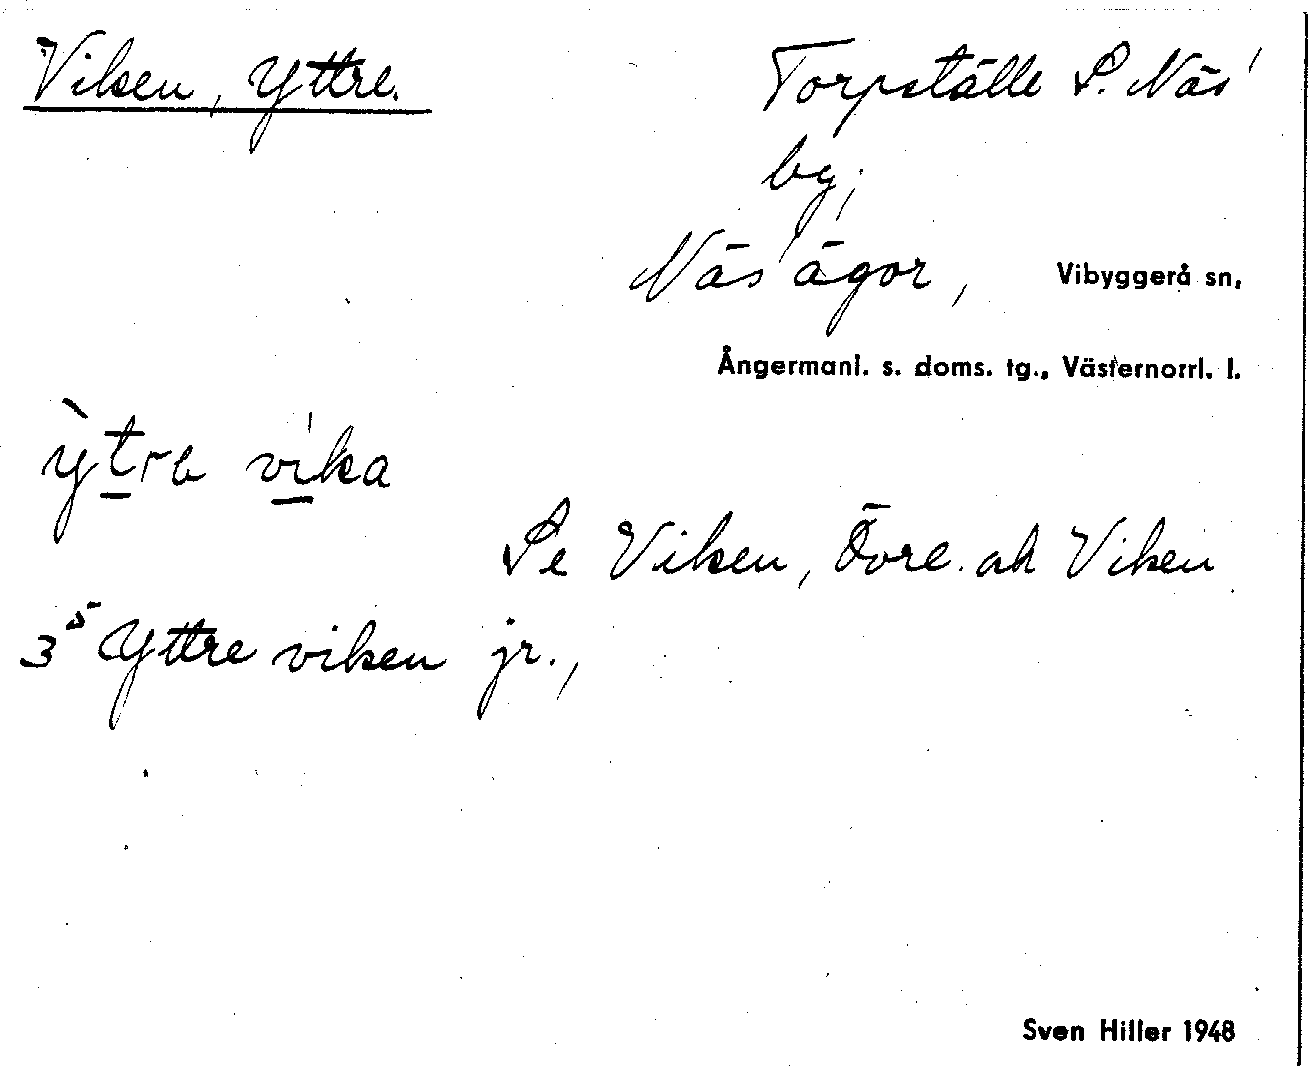 Viken, Yttre.
Torpställe S. Näs'
by,
Näs' ägor,
Vibyggerå sn,
Ångermanl. s. doms. tg., Västernorrl. l.
ỳtrə vi'ka
Se Viken, Övre. ak Viken
3⁵ Yttre viken jr.,
Sven Hiller 1948